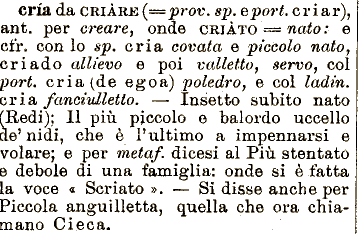 cría da CRIÀRE (= prov. sp. e port. criar),
ant. per creare, onde CRIÀTO = nato: e
cfr. con lo sp. cria covata e piccolo nato,
criado allievo e poi valletto, servo, col
port. cria (de egoa) poledro, e col ladin.
cria fanciulletto. — Insetto subito nato
(Redi); Il più piccolo e balordo uccello
de' nidi, che è l'ultimo a impennarsi e
volare; e per metaf. dicesi al Più stentato
e debole di una famiglia: onde si è fatta
la voce « Scriato ». — Si disse anche per
Piccola anguilletta, quella che ora chia-
mano Cieca.